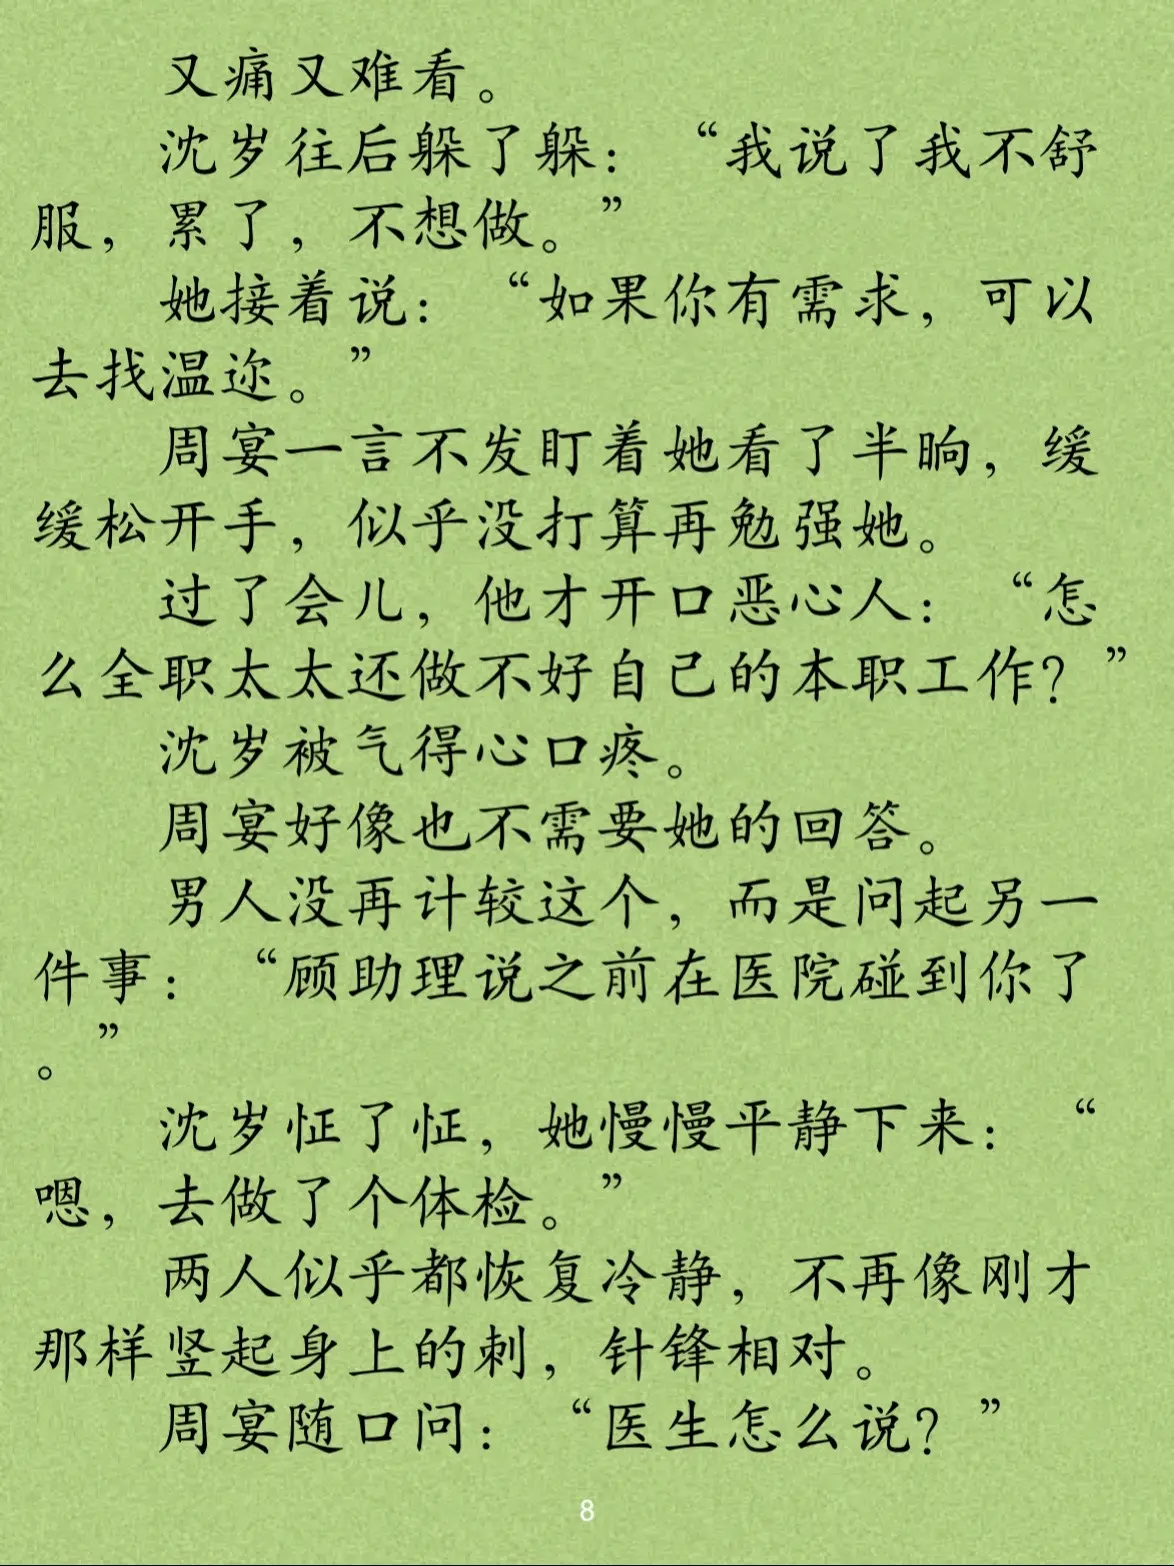 又痛又难看。
沈岁往后躲了躲：“我说了我不舒
服，累了，不想做。”
她接着说：“如果你有需求，可以
去找温迩。”
周宴一言不发盯着她看了半晌，缓
缓松开手，似乎没打算再勉强她。
过了会儿，他才开口恶心人：“怎
么全职太太还做不好自己的本职工作？”
沈岁被气得心口疼。
周宴好像也不需要她的回答。
男人没再计较这个，而是问起另一
件事：“顾助理说之前在医院碰到你了
。”
沈岁怔了怔，她慢慢平静下来：“
嗯，去做了个体检。”
两人似乎都恢复冷静，不再像刚才
那样竖起身上的刺，针锋相对。
周宴随口问：“医生怎么说？”
8